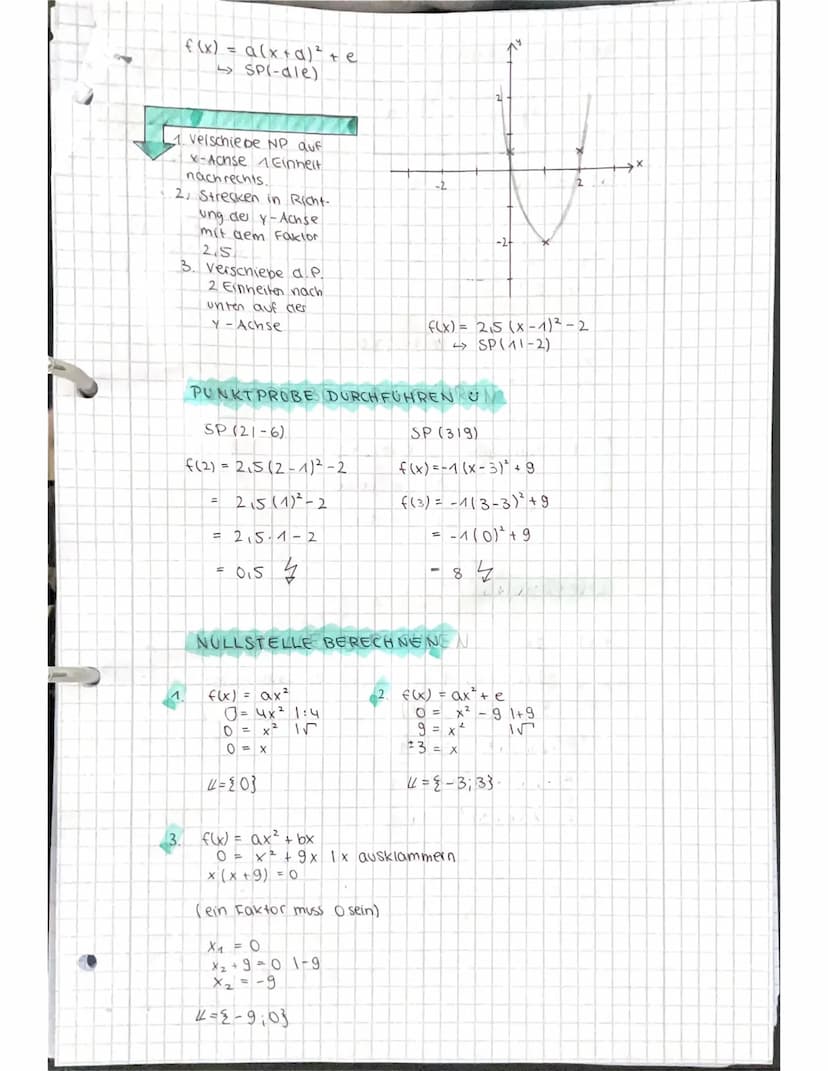 f(x) = a(x+d)² + e
↳ SP(-d|e)
1. Verschiebe NP auf
x-Achse 1 Einheit
nach rechts.
2. Strecken in Richt-
ung der y-Achse
mit dem Faktor
2,5.
3. Verschiebe d.P.
2 Einheiten nach
unten auf der
Y-Achse
y
2
x
-2
2
-2
f(x) = 2,5 (x-1)² - 2
↳ SP(1|-2)
PUNKTPROBE DURCHFÜHREN
SP (2|-6)
f(2) = 2,5 (2-1)² - 2
= 2,5 (1)² - 2
= 2,5 · 1 - 2
= 0,5 ↯
SP (3|9)
f(x) = -1 (x-3)² + 9
f(3) = -1 (3-3)² + 9
= -1 (0)² + 9
= 8 ↯
NULLSTELLE BERECHNEN
1. f(x) = ax²
0 = 4x² |:4
0 = x² |√
0 = x
𝕃={0}
2. f(x) = ax² + e
0 = x² - 9 |+9
9 = x² |√
±3 = x
𝕃={-3;3}
3. f(x) = ax² + bx
0 = x² + 9x | x ausklammern
x (x+9) = 0
(ein Faktor muss 0 sein)
x₁ = 0
x₂ + 9 = 0 |-9
x₂ = -9
𝕃={-9;0}